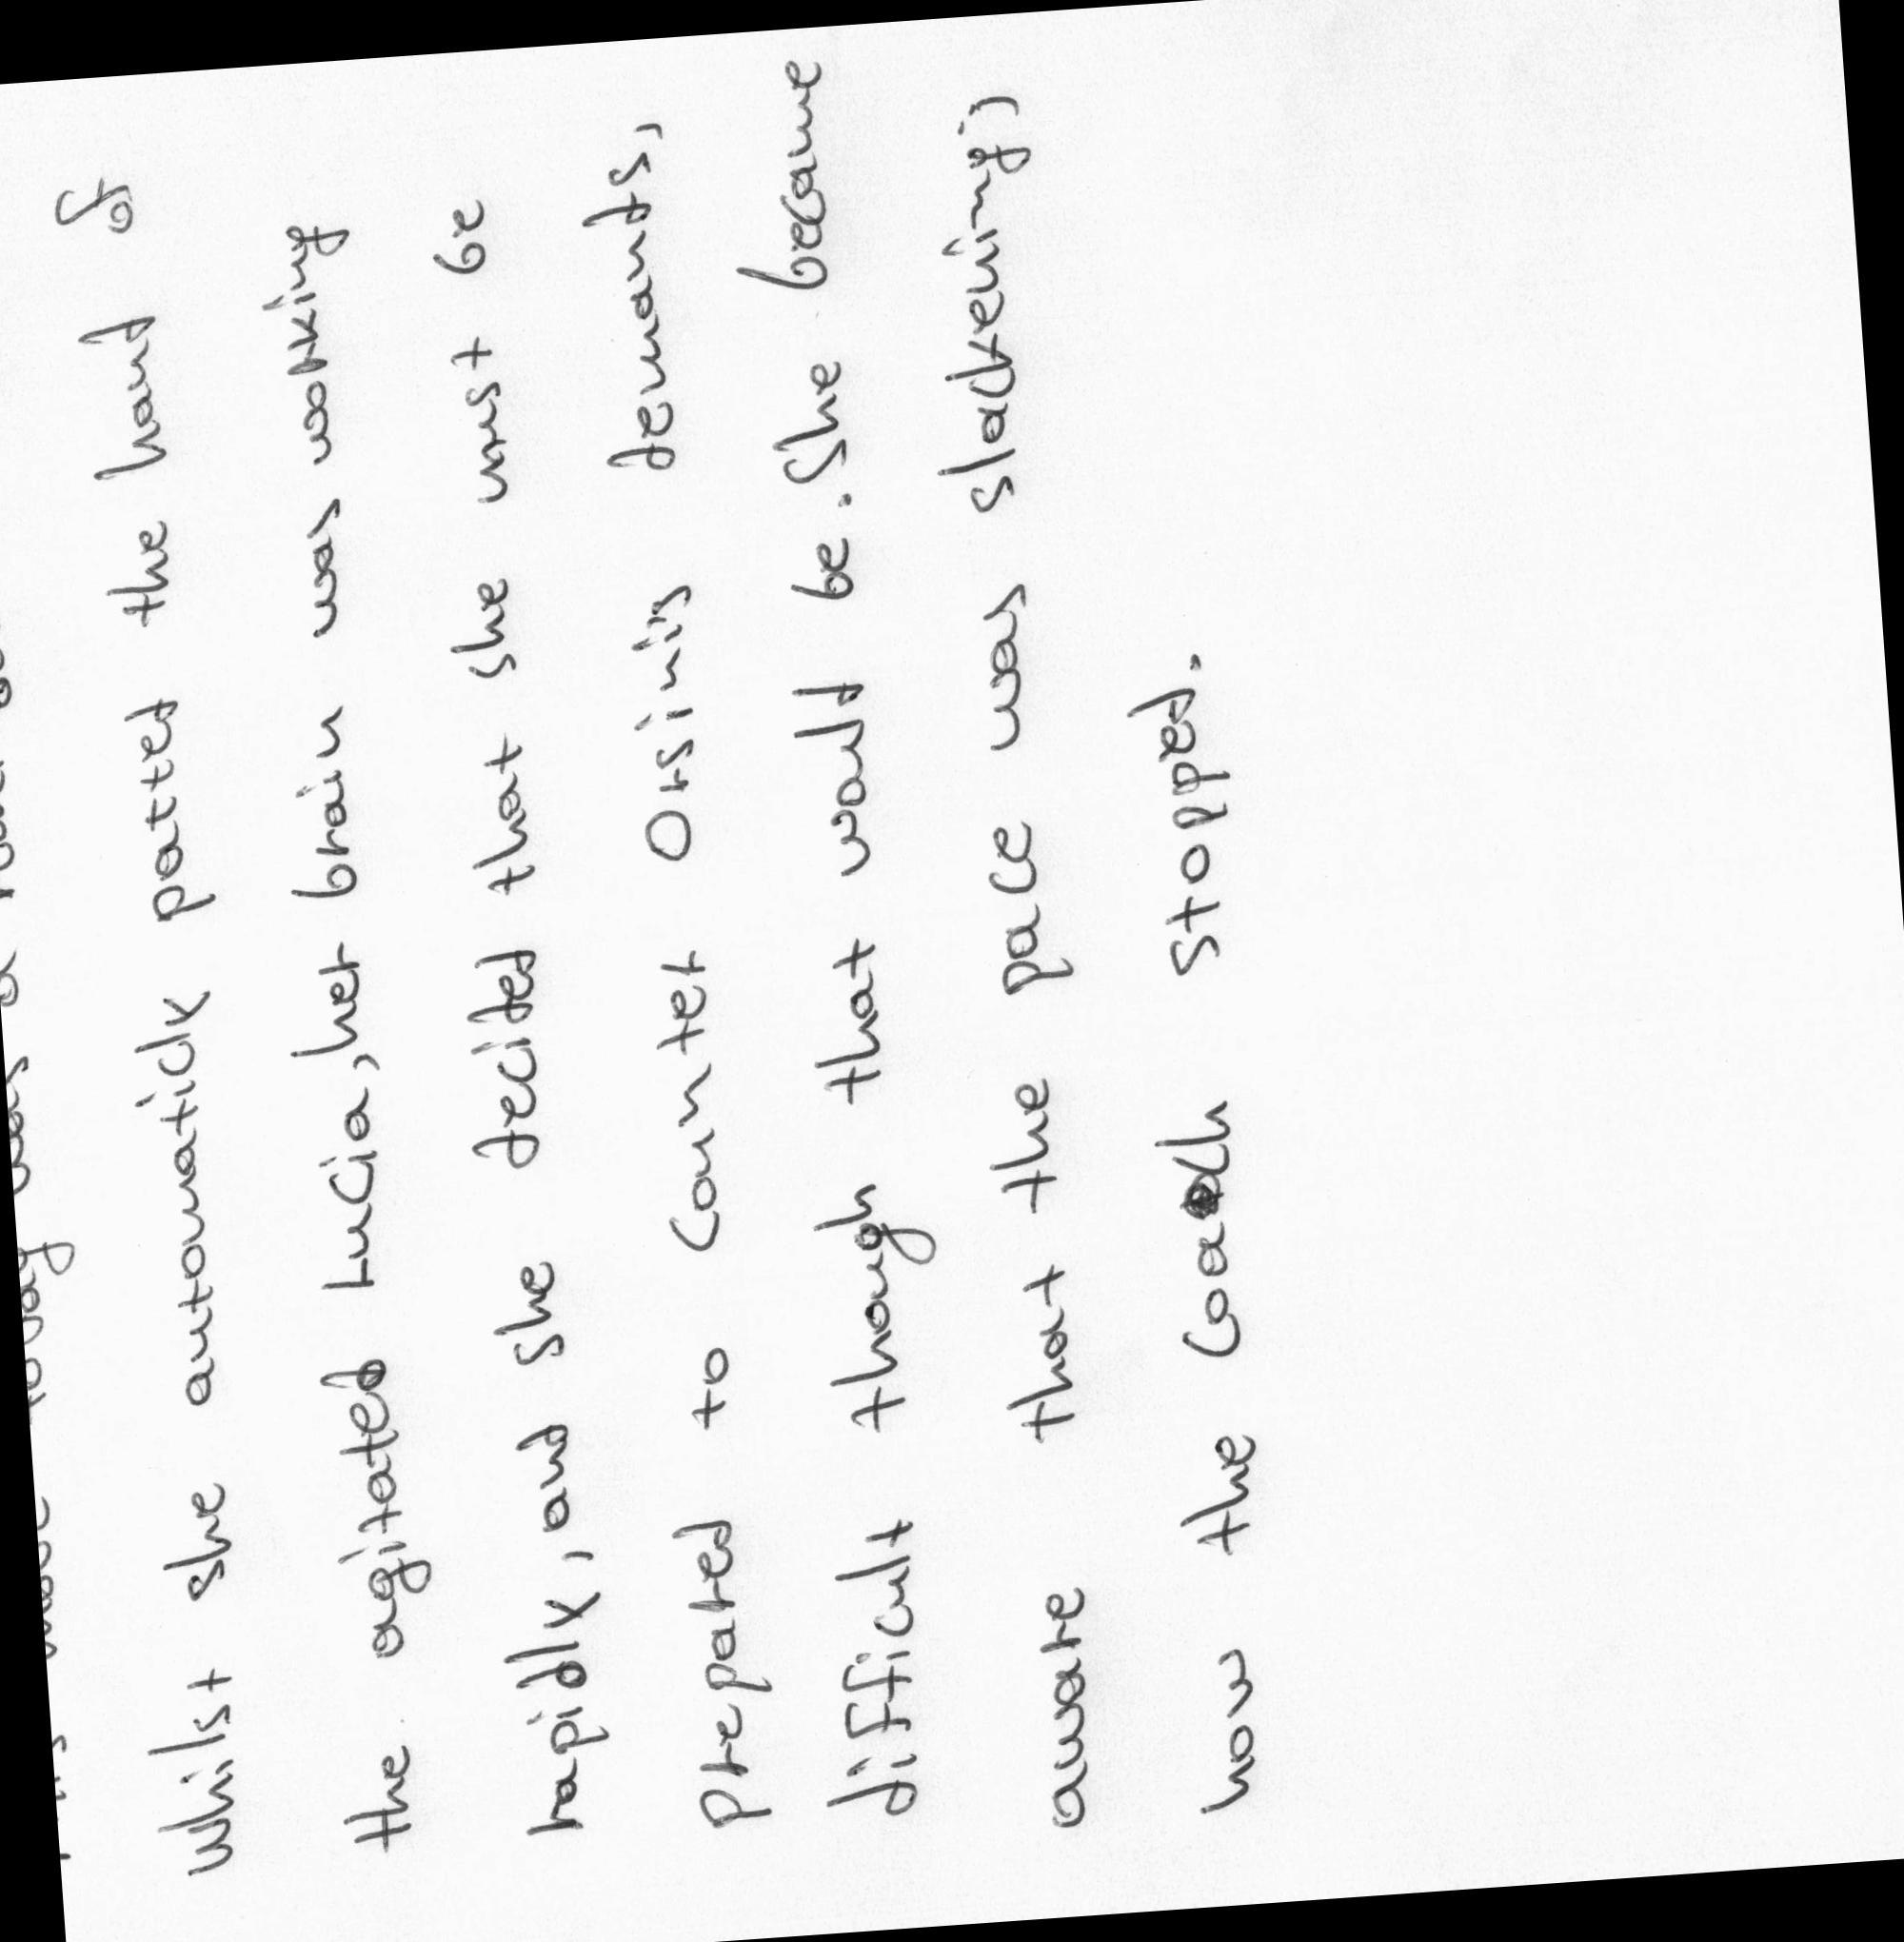 whilst she automatically patted the hand of
the agitated Lucia, her brain was working
rapidly, and she decided that she must be
prepared to counter Orsini's demands,
difficult though that would be. She became
aware that the pace was slackening;
now the coach stopped.